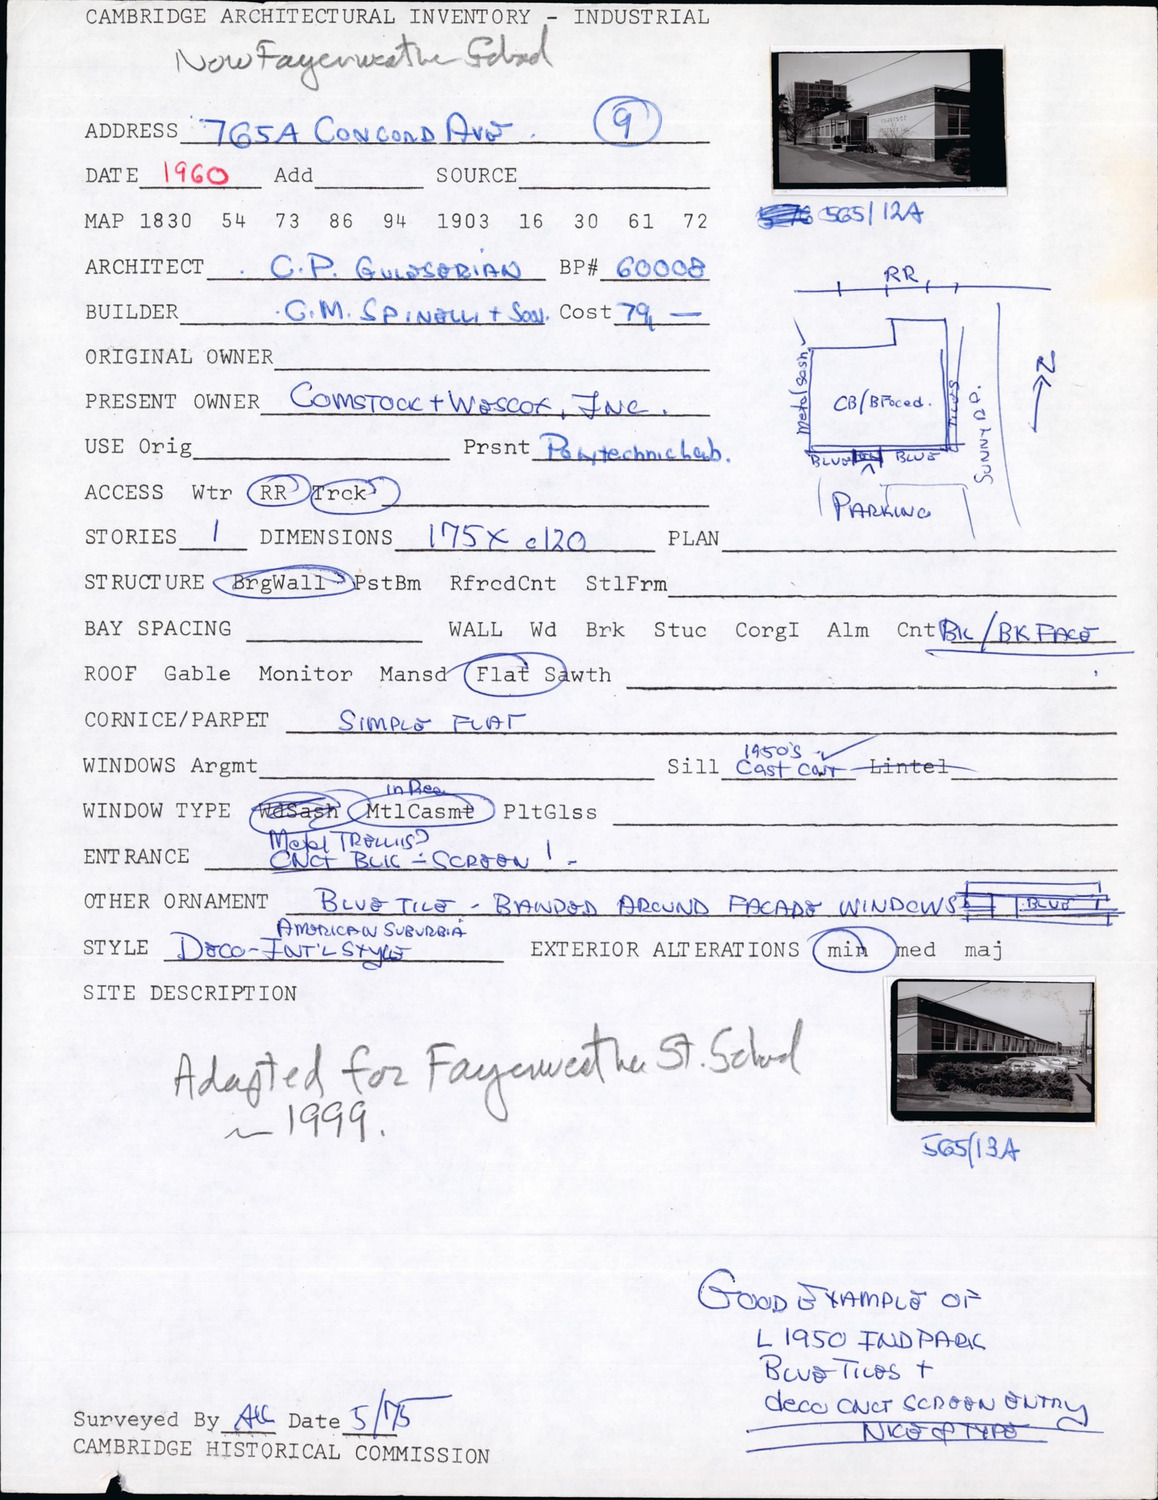 CAMBRIDGE ARCHITECTURAL INVENTORY - INDUSTRIAL
Now Fayerweather School
ADDRESS 765A CONCORD AVE. 9
DATE 1960 Add SOURCE
565/12A
MAP 1830 54 73 86 94 1903 16 30 61 72
ARCHITECT C.P. GULESERIAN BP# 60008
BUILDER G.M. SPINELLI + SON. Cost 79, —
ORIGINAL OWNER
PRESENT OWNER COMSTOCK + WESCOT, INC.
USE Orig Prsnt Polytechnic Lab.
RR
Metal Sash
CB/BFaced.
TILES
SUNNY DP.
N
BLUE BLUE
PARKING
ACCESS Wtr RR Trck
STORIES 1 DIMENSIONS 175 x c120 PLAN
STRUCTURE BrgWall PstBm RfrcdCnt StlFrm
BAY SPACING WALL Wd Brk Stuc CorgI Alm Cnt BK/BK FACE
ROOF Gable Monitor Mansd Flat Sawth
CORNICE/PARPET SIMPLE FLAT
WINDOWS Argmt Sill 1950'S Cast CNT Lintel
WINDOW TYPE WdSash MtlCasmt in Rear PltGlss
Metal TRELLIS?
ENTRANCE CNCT BLK - SCREEN! -
OTHER ORNAMENT BLUE TILE - BANDED AROUND FACADE WINDOWS BLUE
AMERICAN SUBURBIA
STYLE DECO-INT'L STYLE EXTERIOR ALTERATIONS min med maj
SITE DESCRIPTION
Adapted for Fayerweather St. School
~1999.
565/13A
GOOD EXAMPLE OF
L 1950 IND PARK
BLUE TILES +
deco CNCT SCREEN ENTRY
NICE of TYPE
Surveyed By Date 5/75
CAMBRIDGE HISTORICAL COMMISSION